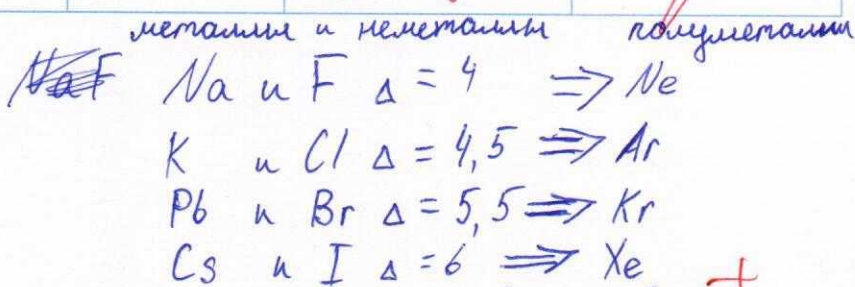 металлы и неметаллы полуметаллы
Na и F Δ = 4 => Ne
K и Cl Δ = 4,5 => Ar
Pb и Br Δ = 5,5 => Kr
Cs и I Δ = 6 => Xe
+